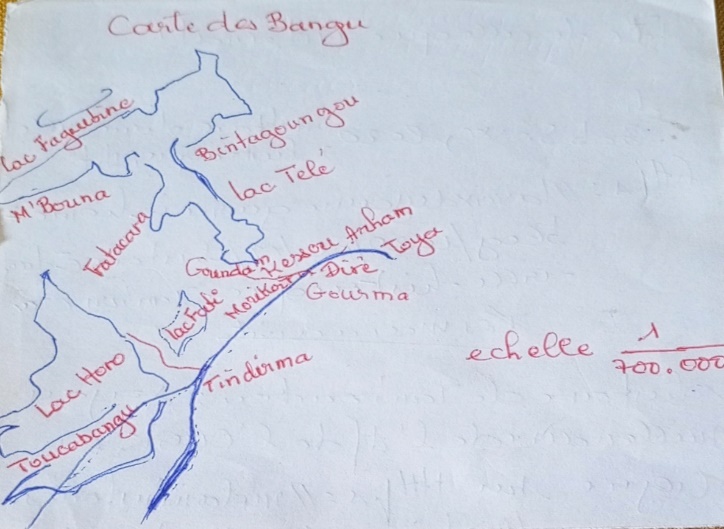 Carte des Bangu
Lac Faguibine
Bintagoungou
M'Bouna
Lac Télé
Fatacara
Arham
Kessou
Toya
Goundam
Diré
Morikoira
Gourma
Lac Fati
echelle 1/700.000
Lac Horo
Tindirma
Toucabangu